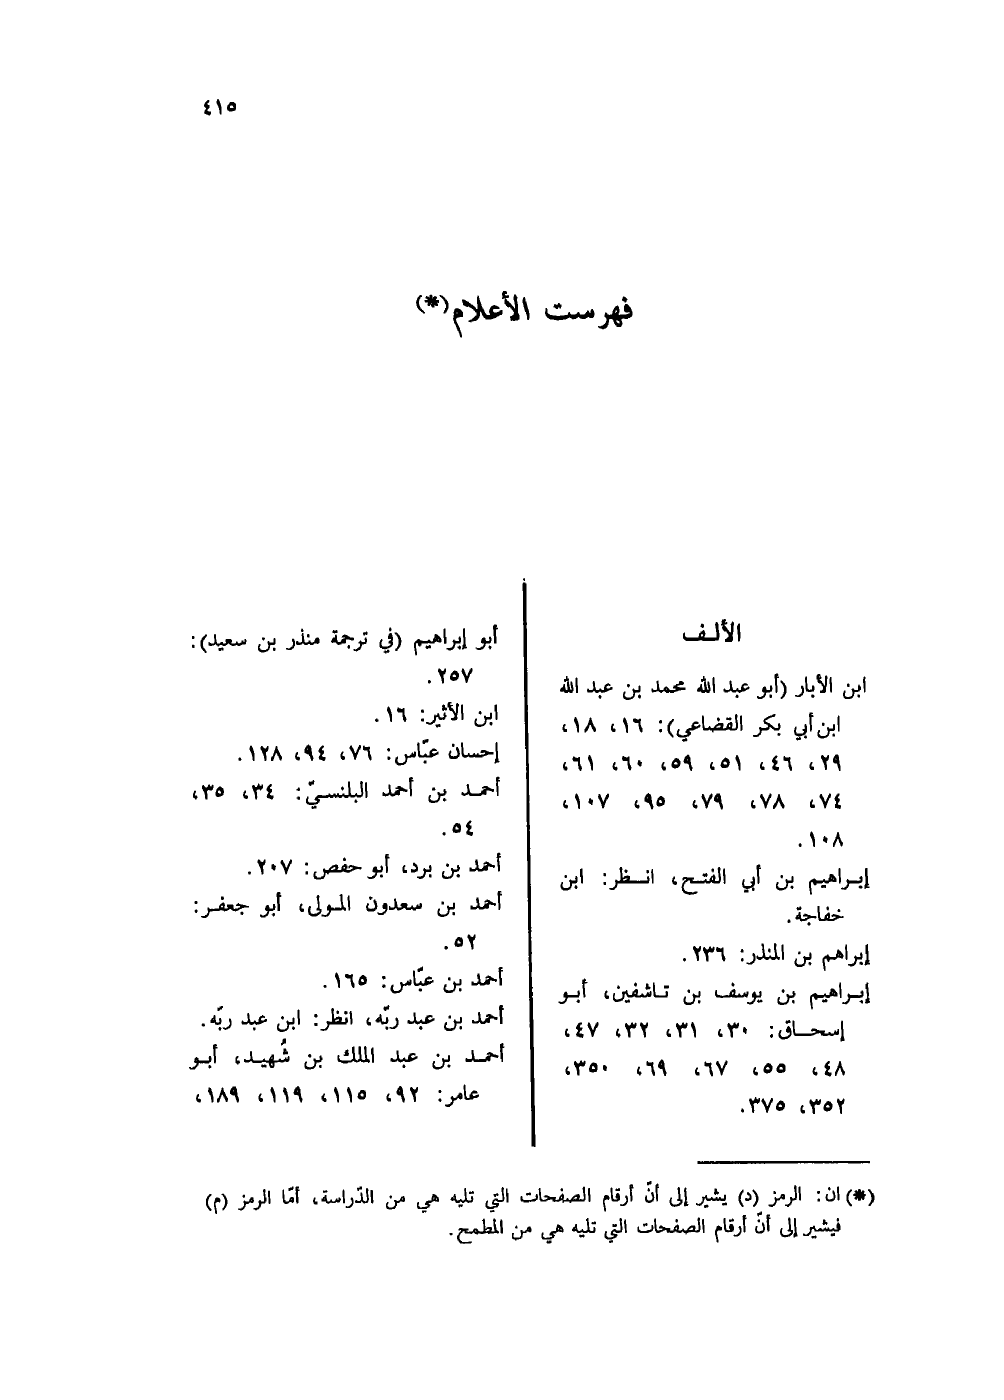 ٤١٥
فهرست الأعلام(*)
الألـف
ابن الأبار (أبو عبد الله محمد بن عبد الله
ابن أبي بكر القضاعي): ١٦، ١٨،
٢٩، ٤٦، ٥١، ٥٩، ٦٠، ٦١،
٧٤، ٧٨، ٧٩، ٩٥، ١٠٧،
١٠٨.
إبـراهيم بن أبي الفتـح، انـظر: ابن
خفاجة.
إبراهم بن المنذر: ٢٣٦.
إبـراهيم بن يوسف بن تـاشفين، أبـو
إسحـاق: ٣٠، ٣١، ٣٢، ٤٧،
٤٨، ٥٥، ٦٧، ٦٩، ٣٥٠،
٣٥٢، ٣٧٥.
أبو إبراهيم (في ترجمة منذر بن سعيد):
٢٥٧.
ابن الأثير: ١٦.
إحسان عبّاس: ٧٦، ٩٤، ١٢٨.
أحمـد بن أحمد البلنسـيّ: ٣٤، ٣٥،
٥٤.
أحمد بن برد، أبو حفص: ٢٠٧.
أحمد بن سعدون المـولى، أبو جعفـر:
٥٢.
أحمد بن عبّاس: ١٦٥.
أحمد بن عبد ربّه، انظر: ابن عبد ربّه.
أحمـد بن عبد الملك بن شُهيـد، أبـو
عامر: ٩٢، ١١٥، ١١٩، ١٨٩،
(*) ان: الرمز (د) يشير إلى أنّ أرقام الصفحات التي تليه هي من الدّراسة، أمّا الرمز (م)
فيشير إلى أنّ أرقام الصفحات التي تليه هي من المطمح.